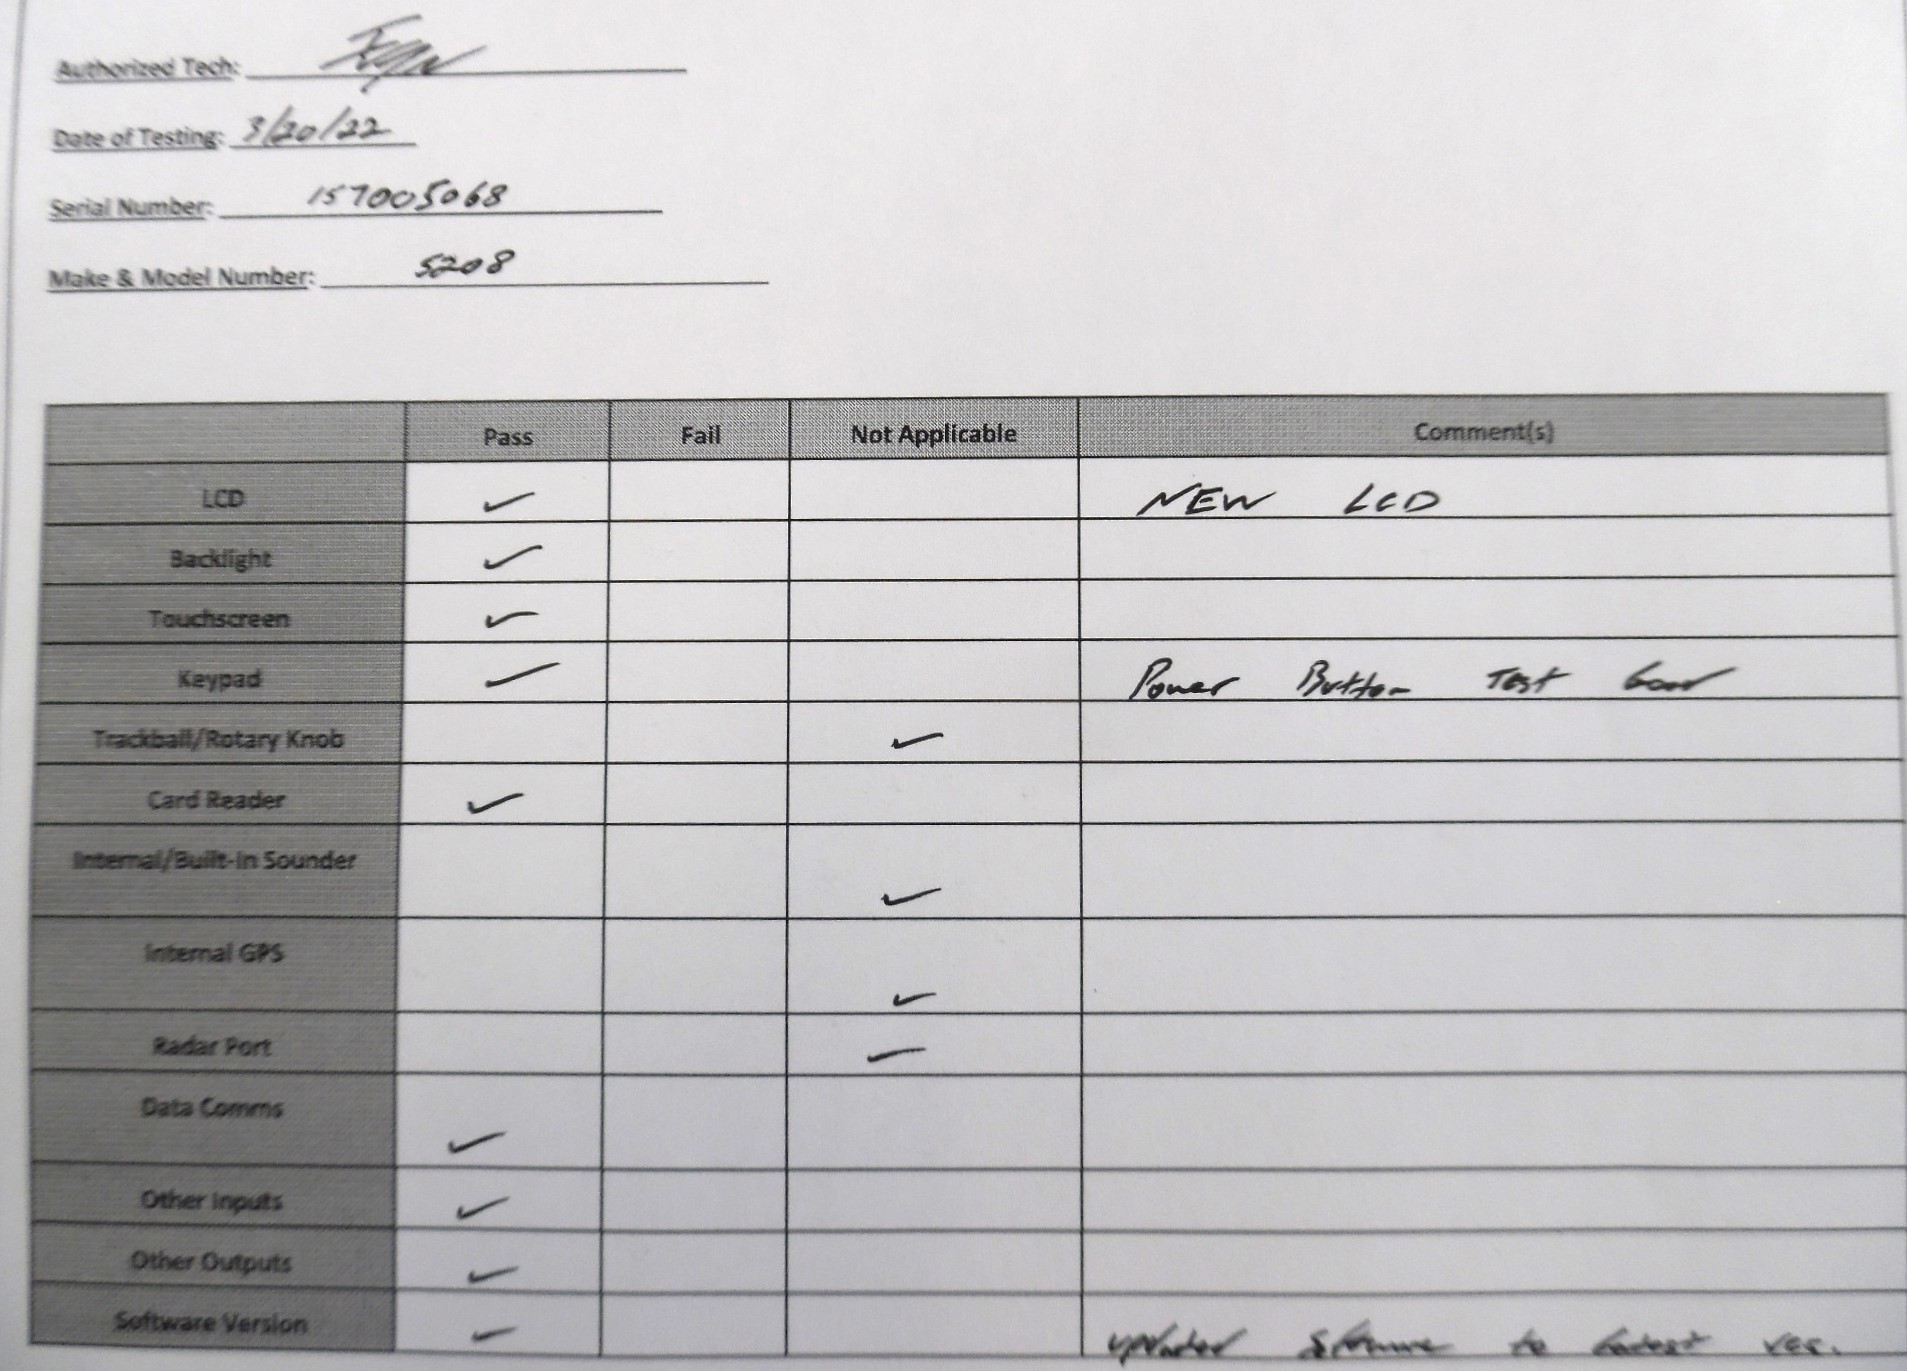 Authorized Tech:
Date of Testing: 3/20/22
Serial Number: 157005068
Make & Model Number: 5208
Pass Fail Not Applicable Comment(s)
LCD ✓ NEW LCD
Backlight ✓
Touchscreen ✓
Keypad ✓ Power Button Test Good
Trackball/Rotary Knob ✓
Card Reader ✓
Internal/Built-in Sounder ✓
Internal GPS ✓
Radar Port ✓
Data Comms ✓
Other Inputs ✓
Other Outputs ✓
Software Version ✓ updated software to latest ver.